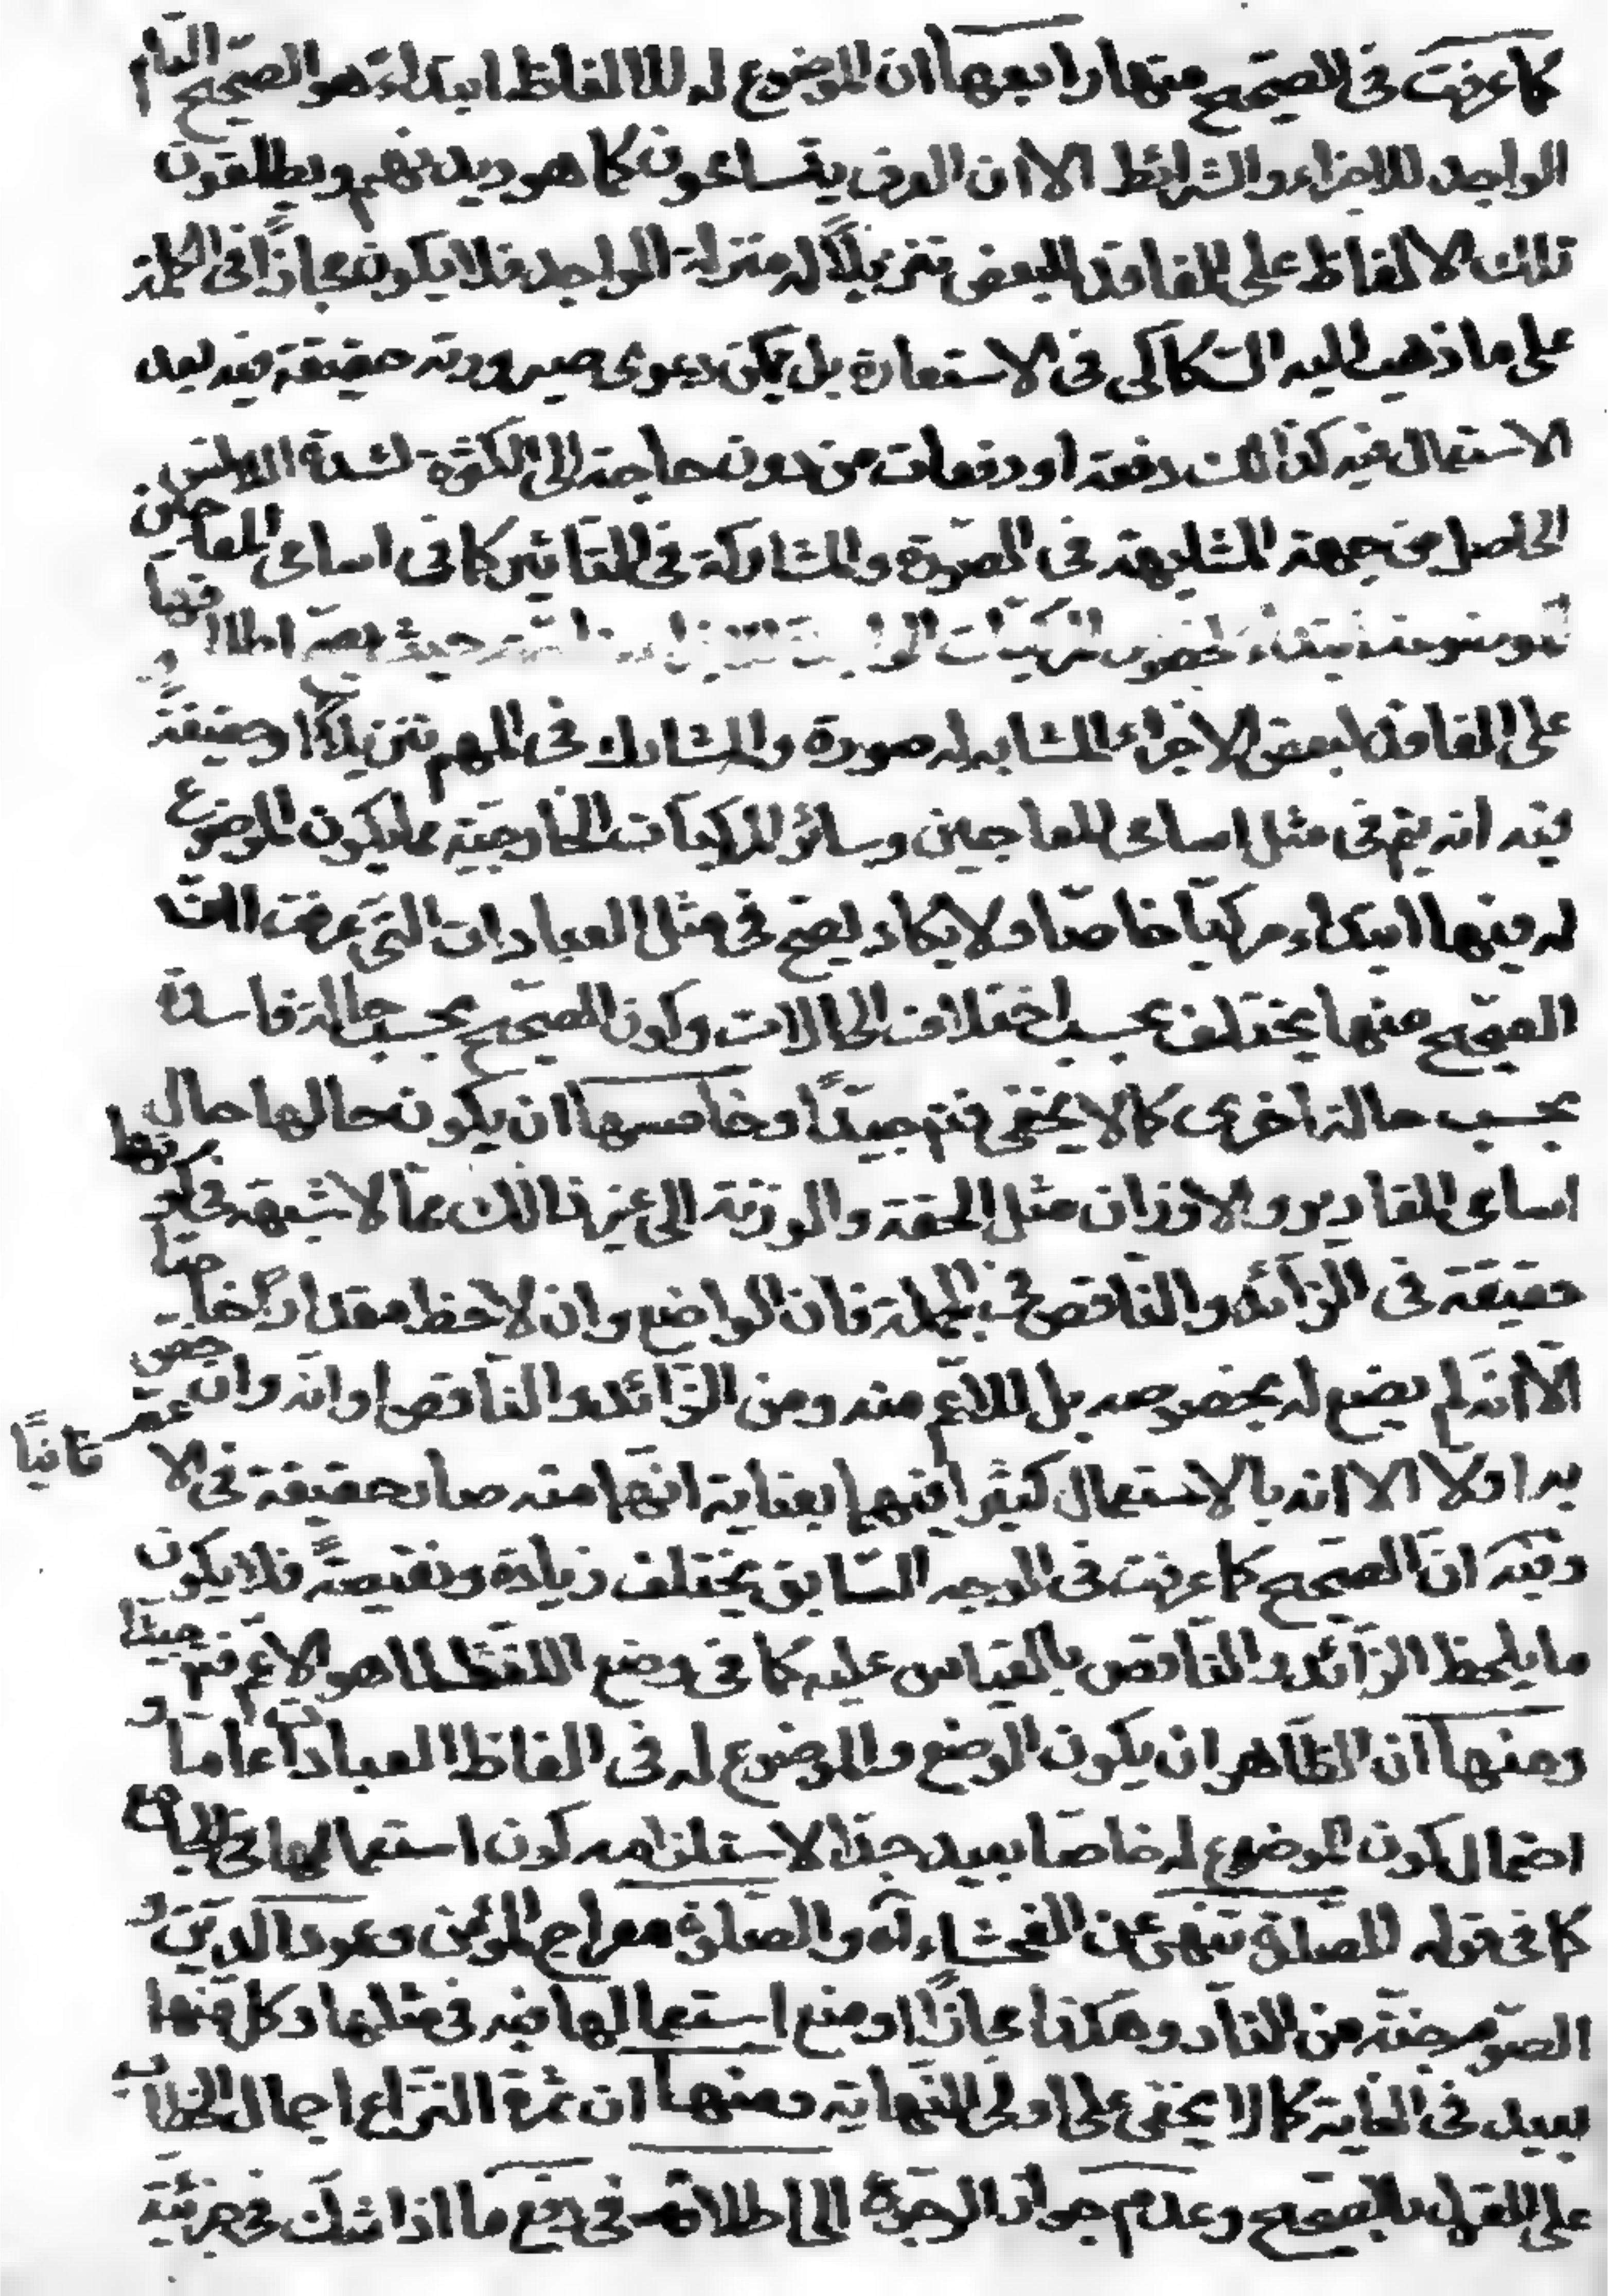 كما عرفت في الصحيح منها رابعها ان الموضوع له للالفاظ ابتداء هو الصحيح التام
الواجد للاجزاء والشرائط الا ان العرف يتسامحون كما هو ديدنهم ويطلقون
تلك الالفاظ على الفاقد للبعض تنزيلًا له منزلة الواجد فلا يكون مجازًا في الكلمة
على ما ذهب اليه السّكاكي في الاستعارة بل يمكن دعوى صيرورته حقيقة فيه بعد
الاستعمال فيه كذلك دفعة او دفعات من دون حاجة الى الكثرة لشدة الانس
الحاصل من جهة المشابهة في الصورة والمشاركة في التاثير كما في اسامى المعاجين
الموضوعة ابتداء لخصوص مركبات حيث يصح اطلاقها
على الفاقد لبعض الاجزاء المشابه له صورة والمشارك في المهم تنزيلًا او حقيقةً و
فيه انه يتم في مثل اسامى المعاجين وسائر المركبات الخارجية مما يكون الموضوع
له فيها ابتداء مركبًا خاصًا ولا يكاد يصح في مثل العبادات التي عرفت انّ
الصحيح منها يختلف بحسب اختلاف الحالات وكون الصحيح بحسب حالة فاسدًا
بحسب حالة اخرى كما لا يخفى فتم جيدًا وخامسها ان يكون حالها حال
اسامى المقادير والاوزان مثل الحقة والوزنة الى غير ذلك مما لا شبهة في كونها
حقيقة في الزائد والناقص في الجملة فان الواضع وان لاحظ مقدارًا خاصًا
الّا انه لم يضع له بخصوصه بل للاعم منه ومن الزائد والناقص او انه وان خصّ
به اولًا الا انه بالاستعمال كثيرًا فيهما بعناية انهما منه صار حقيقة في الاعمّ ثانيًا
وفيه انّ الصحيح كما عرفت في الوجه السّابق يختلف زيادة ونقيصةً فلا يكون
ما يلحظ الزائد والناقص بالقياس عليه كما في وضع اللفظ لما هو الاعم فتم جيدًا
ومنها ان الظاهر ان يكون الوضع والموضوع له في الفاظ العبادات عامًا و
احتمال كون الموضوع له خاصًا بعيد جدًا لاستلزامه كون استعمالها في الجامع
كما في قوله الصلوة تنهى عن الفحشاء آه والصلوة معراج المؤمن وعمود الدين و
الصوم جنة من النار وهكذا مجازًا او منع استعمالها فيه في مثلها وكل منها
بعيد في الغاية كما لا يخفى على اولى النهاية ومنها ان ثمرة النزاع اجمال الخطاب
على القول بالصحيح وعدم جواز الرجوع الى اطلاقه في رفع ما اذا شك في جزئية